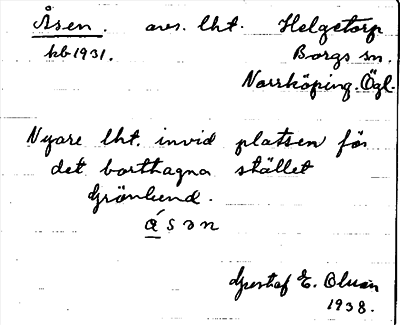 Åsen. avs. lht. Helgetorp
kb 1931. Borgs sn.
Norrköping. Ögl.
Nyare lht. invid platsen för
det borttagna stället
Grönlund.
ǻsən
Gustaf E. Olsson
1938.